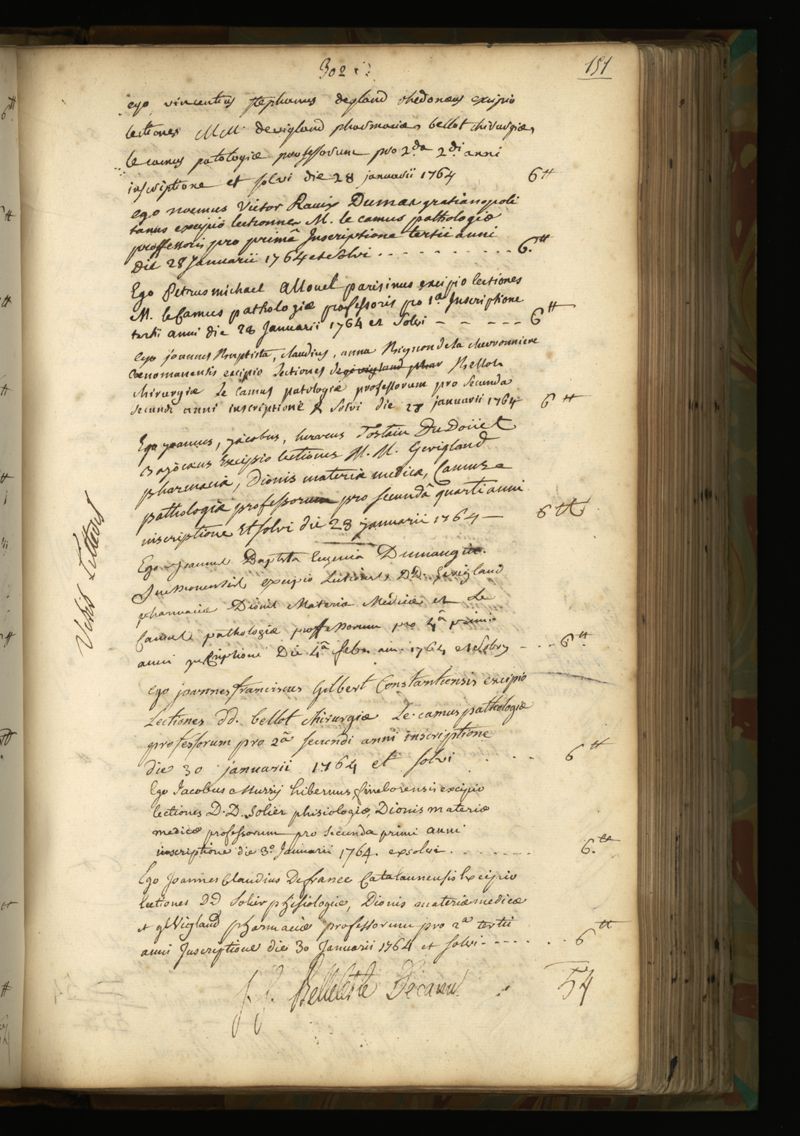 302
151
ego vincentius stephanus degland rhedonaeus excipio
lectiones MM devigland pharmaciae, bellot chirurgiae,
le camus patologiae professorum pro 2da 2di anni
inscriptione et solvi die 28 januarii 1764 6tt
ego noemus Victor Ravix Dumas gratianopoli
tanus excipio lectiones M. le camus pathologiae
proffessoris pro primâ Inscriptione tertii anni
die 28 Januarii 1764 et solvi 6.tt
Ego Petrus michael Allouel parisinus excipio lectiones
M. le Camus pathologiae professoris pro 1a Inscriptione
tertii anni die 28 Januarii 1764 et solvi 6tt
ego joannes Baptista, claudius, anna
coenomanensis excipio lectiones Bellot
chirurgiae le camus patologiae professorum pro secunda
secundi anni inscriptione & solvi die 28 januarii 1764 6tt
Ego joannes, jacobus, Tostain Du Doüet
Excipio lectiones M. M. Gevigland
pharmaciae, Dionis materia medica, Camus
pathologiae professorum pro secundâ quarti anni
inscriptione et solvi die 28 januarii 1764 6tt
Visis Litteris
Ego Joannes Baptista Eugenia Dumangin
excipio Lectiones DD. Gevigland
pharmaciae Dionis Materia Medicae et Le
Camus pathologiae proffessorum pro 4a primi
anni inscriptione Die 4a feb. an. 1764 et solvi 6tt
ego joannes franciscus Gilbert Constantiensis excipio
Lectiones dd. bellot chirurgiae Le camus pathologiae
professorum pro 2a secundi anni inscriptione
die 30 januarii 1764 et solvi 6tt
Ego Jacobus Murry hibernus excipio
lectiones D. D. Solier phisiologiae, Dionis materiae
medicae professorum pro secunda primi anni
inscriptione die 30 Januarii 1764. exsolvi 6.tt
Ego Joannes Claudius Defrance Catalaunensis Excipio
Lectiones DD Solier phisiologiae, Dionis materiae medicae
et gevigland pharmaciae professorum pro 2a tertii
anni Inscriptione die 30 Januarii 1764 et solvi 6tt
j. j. Belleteste Decanus. 54